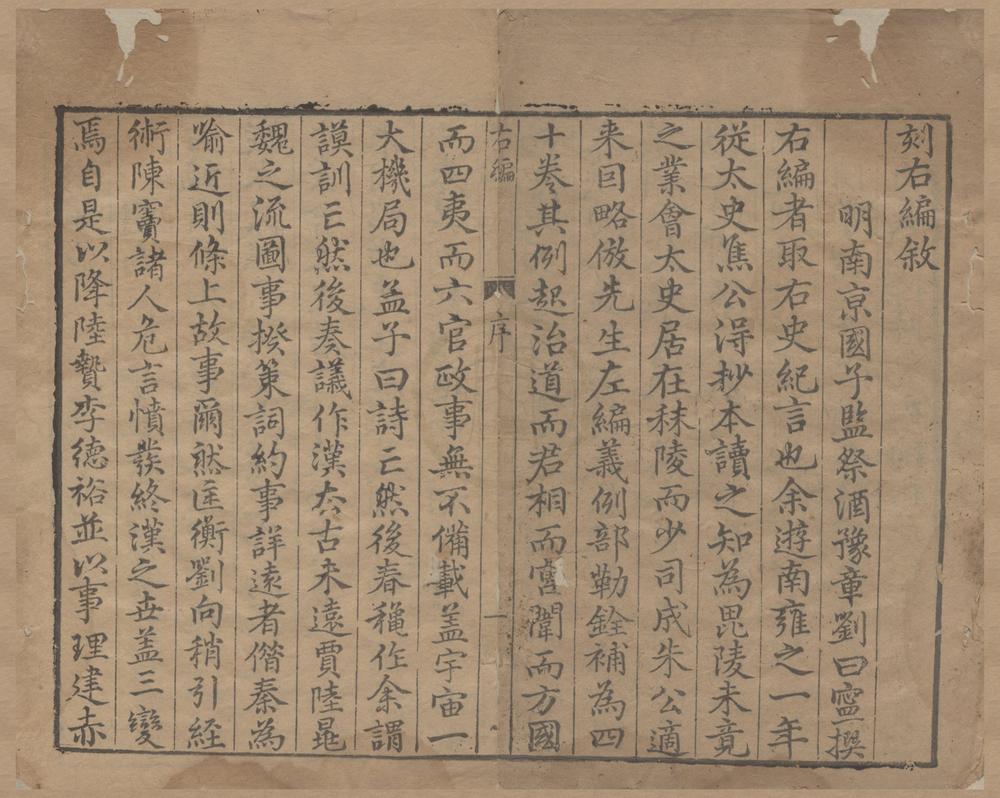 刻右編敘
明南京國子監祭酒豫章劉曰寧撰
右編者取右史紀言也余遊南雍之一年
從太史焦公得抄本讀之知為毘陵未竟
之業會太史居在秣陵而少司成朱公適
来回略倣先生左編義例部勒銓補為四
十卷其例起治道而君相而宮闈而方國
右編
序
一
而四夷而六官政事無不備載盖宇宙一
大機局也盖子曰詩亡然後春穐作余謂
謨訓亡然後奏議作漢去古未遠賈陸鼂
魏之流圖事揆策詞約事詳遠者偺秦為
喻近則條上故事爾然匡衡劉向稍引経
術陳竇諸人危言憤發終漢之世盖三變
焉自是以降陸贄李德裕並以事理建赤